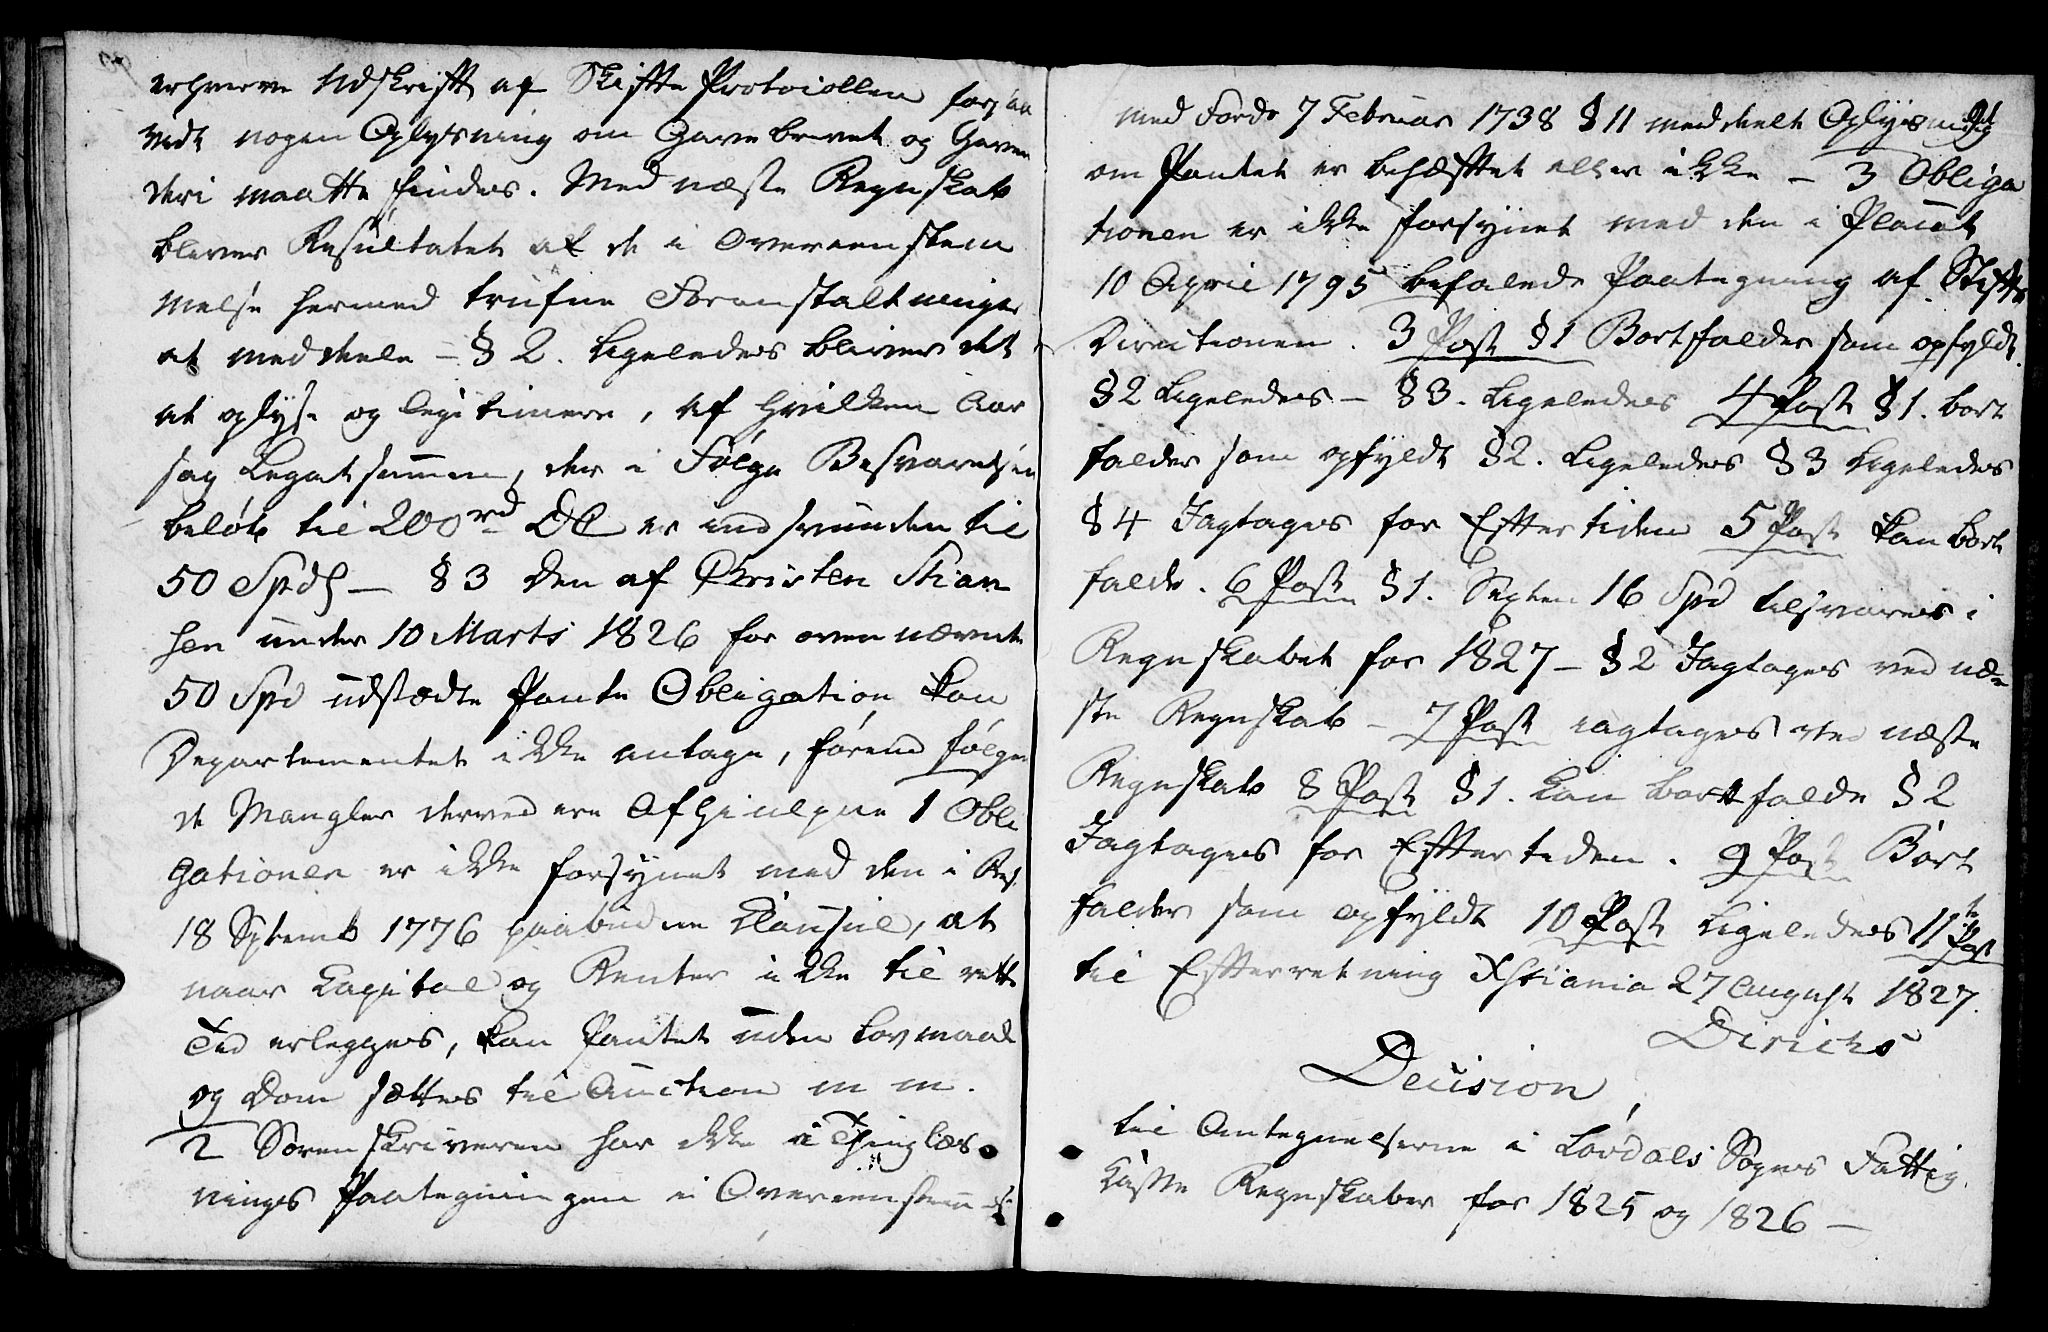 erhverve Udskrift af Skifte Protocollen forsaa
vidt nogen Oplysning om Gavebrevet og Gaven
deri maatte findes. Med næste Regnskab
bliver Resultatet af de i Overeenstem
melse hermed trufne Foranstaltninger
at meddeele – § 2. Ligeledes bliver det
at oplyse og legitimere, af hvilken Aar
sag Legatsummen, der i Følge Besvarelsen
beløb til 200 rd DC er indsvunden til
50 Spd – § 3 Den af Christen Stian
sen under 10 Marts 1826 for ovennævnte
50 Spd udstædte Pante Obligation kan
Departementet ikke antage, førend følgen
de Mangler derved ere Afhiulpne 1 Obli
gationen er ikke forsynet med den i Res.
18 Septemb 1776 paabudne Clausul, at
naar Capital og Renter ikke til rette
Tid erlegges, kan Pantet uden Lovmaal
og Dom sættes til Auction m m.
2 Sorenskriveren har ikke i Thinglæs
nings Paategningen i Overeenstemmelse
med Fordr 7 Februar 1738 § 11 meddeelt Oplysning
om Pantet er behæftet eller ikke – 3 Obliga
tionen er ikke forsynet med den i Placat
10 April 1795 befalede Paategning af Stifts
Directionen. 3 Post § 1 Bortfalder som opfyldt.
§ 2 Ligeledes – § 3. Ligeledes 4 Post § 1. bort
falder som opfyldt § 2. Ligeledes § 3 Ligeledes
§ 4 Iagtages for Eftertiden 5 Post kan bort
falde. 6 Post § 1. Sexten 16 Spd tilsvares i
Regnskabet for 1827 – § 2 Iagtages ved næ
ste Regnskab – 7 Post iagtages ved næste
Regnskab 8 Post § 1. Kan bortfalde § 2
Iagtages for Eftertiden. 9 Post Bort
falder som opfyldt 10 Post Ligeledes 11te Post
til Efterretning Xstiania 27 August 1827.
Diriks
Decision
til Antegnelserne i Lardals Sogns Fattig
Casse Regnskaber for 1825 og 1826 –